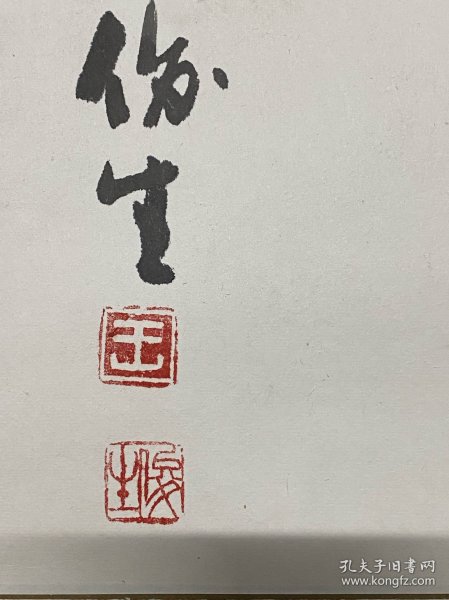 俊生
王
俊生
孔夫子旧书网
www.kongfz.com